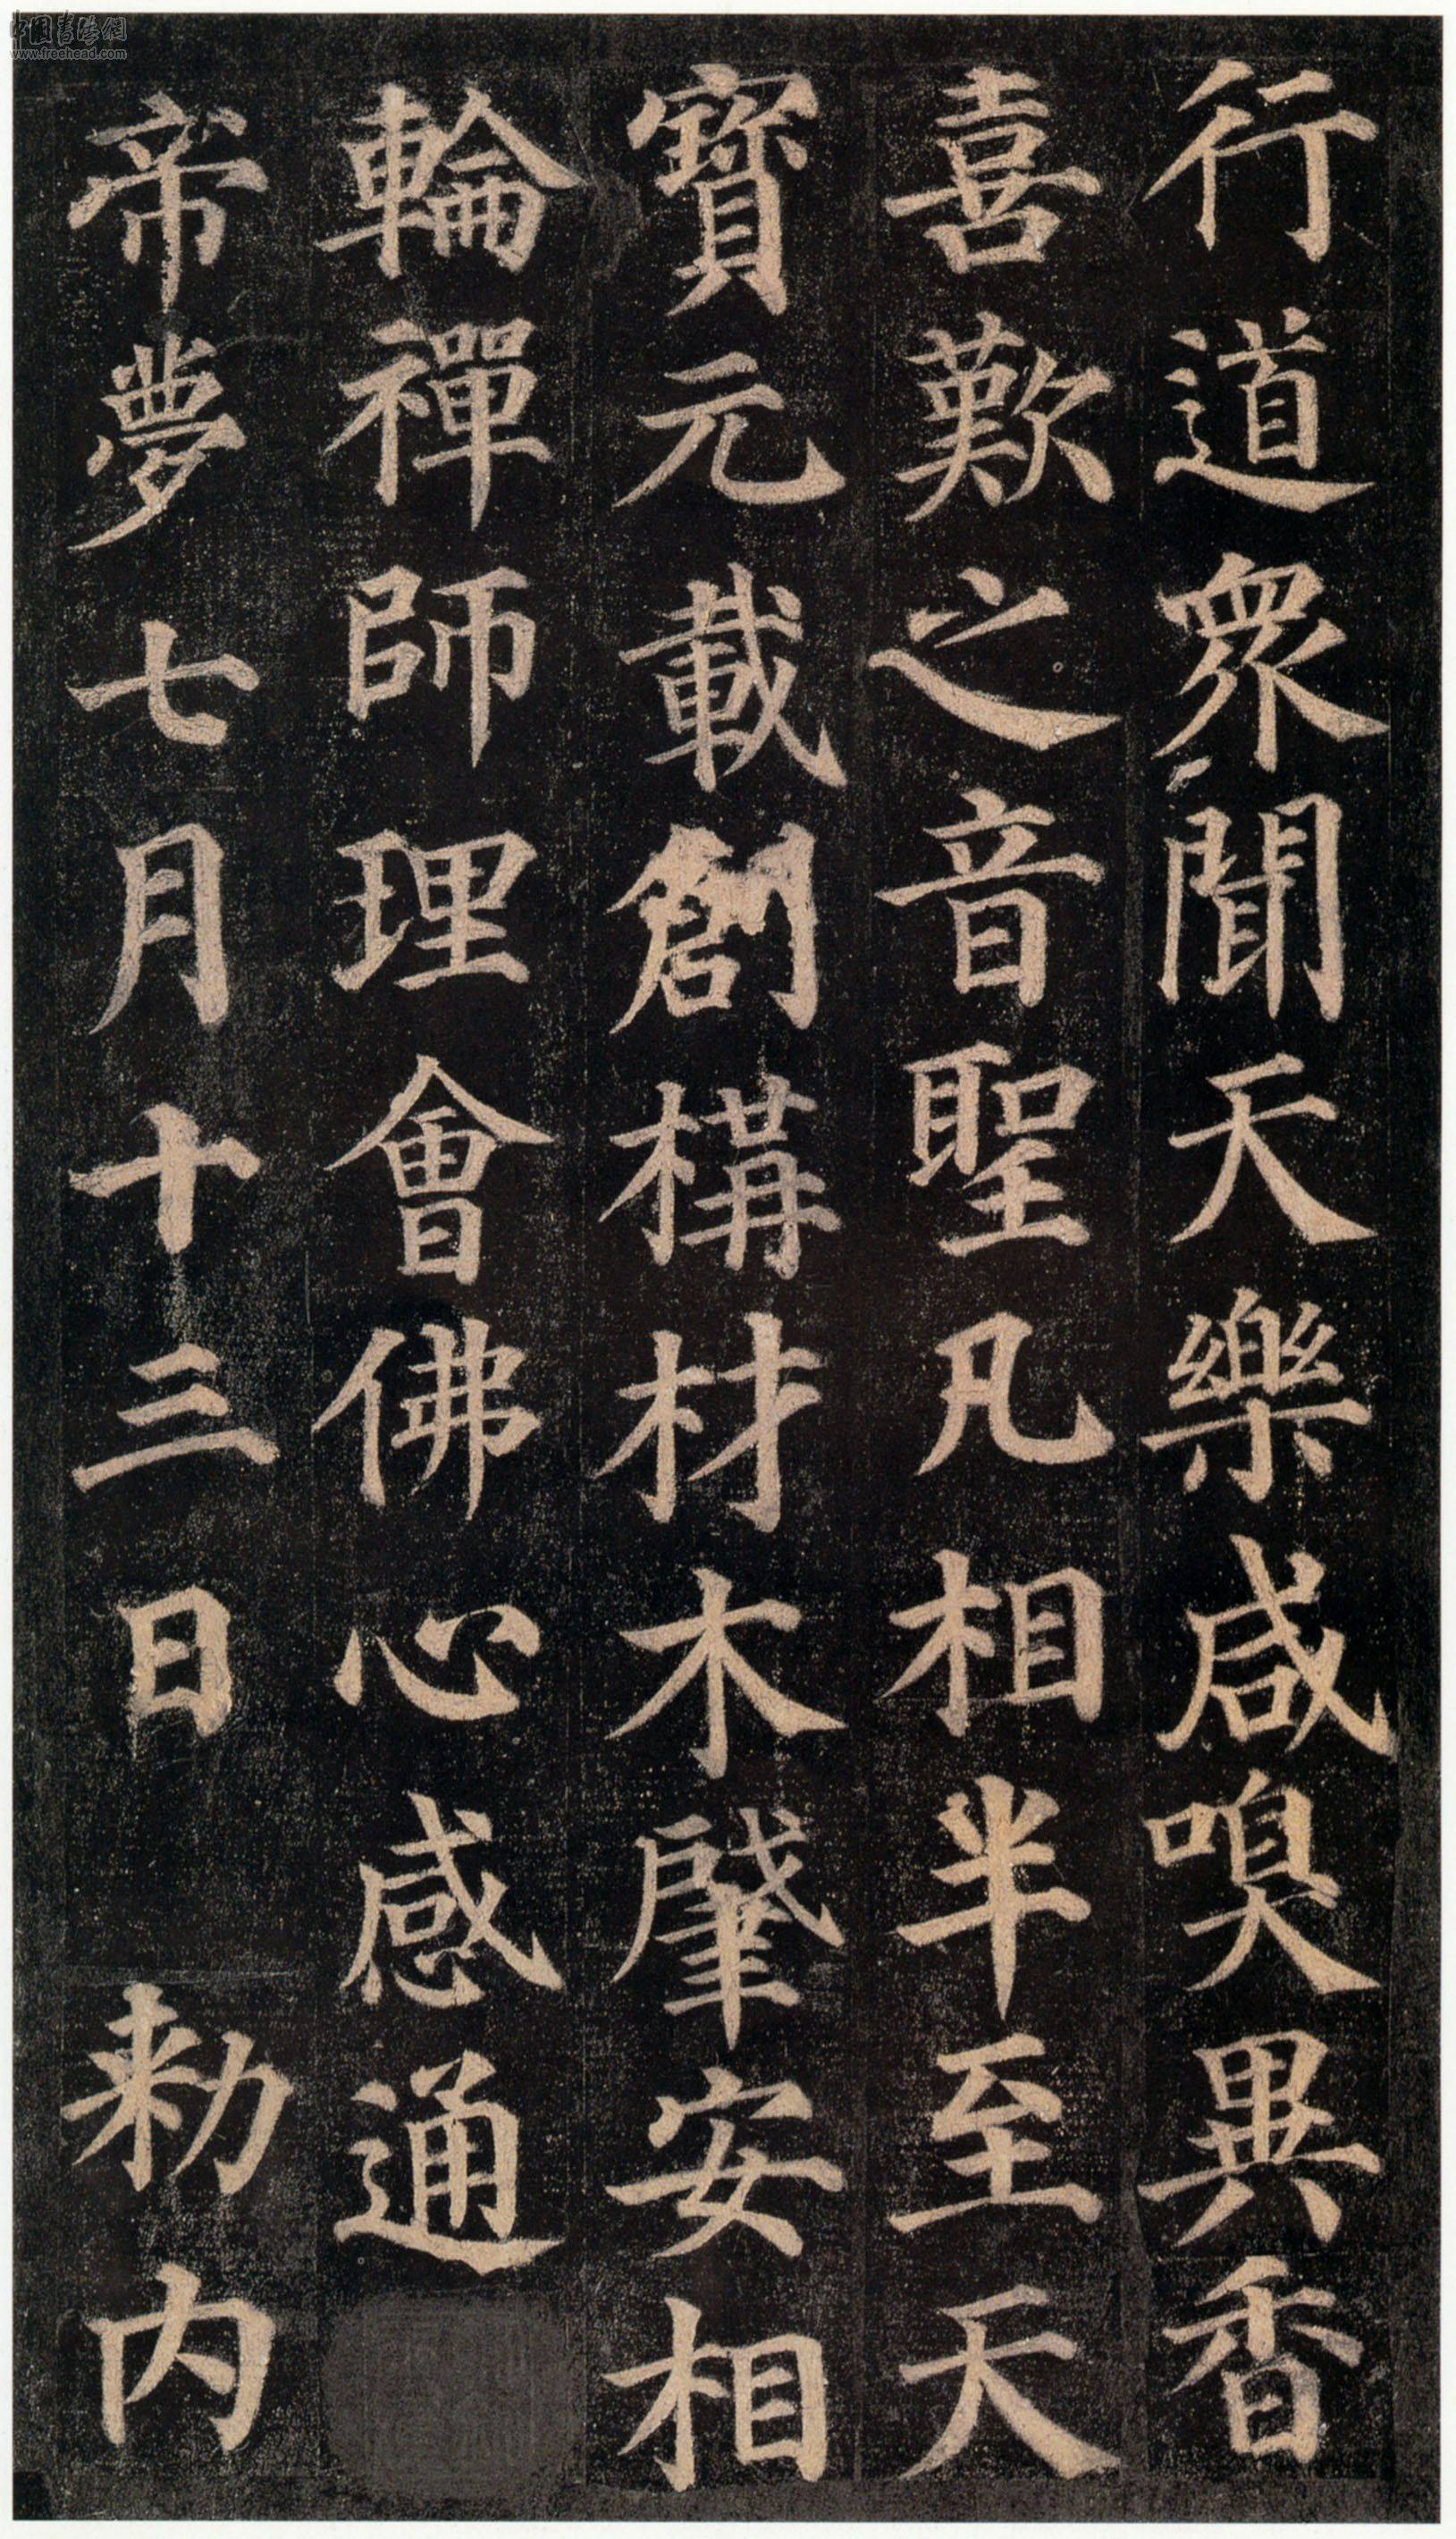 行道眾聞天樂咸嗅異香
喜歎之音聖凡相半至天
寶元載創構材木肈安相
輪禪師理會佛心感通
帝夢七月十三日 勑內
中国书法网
www.freehead.com